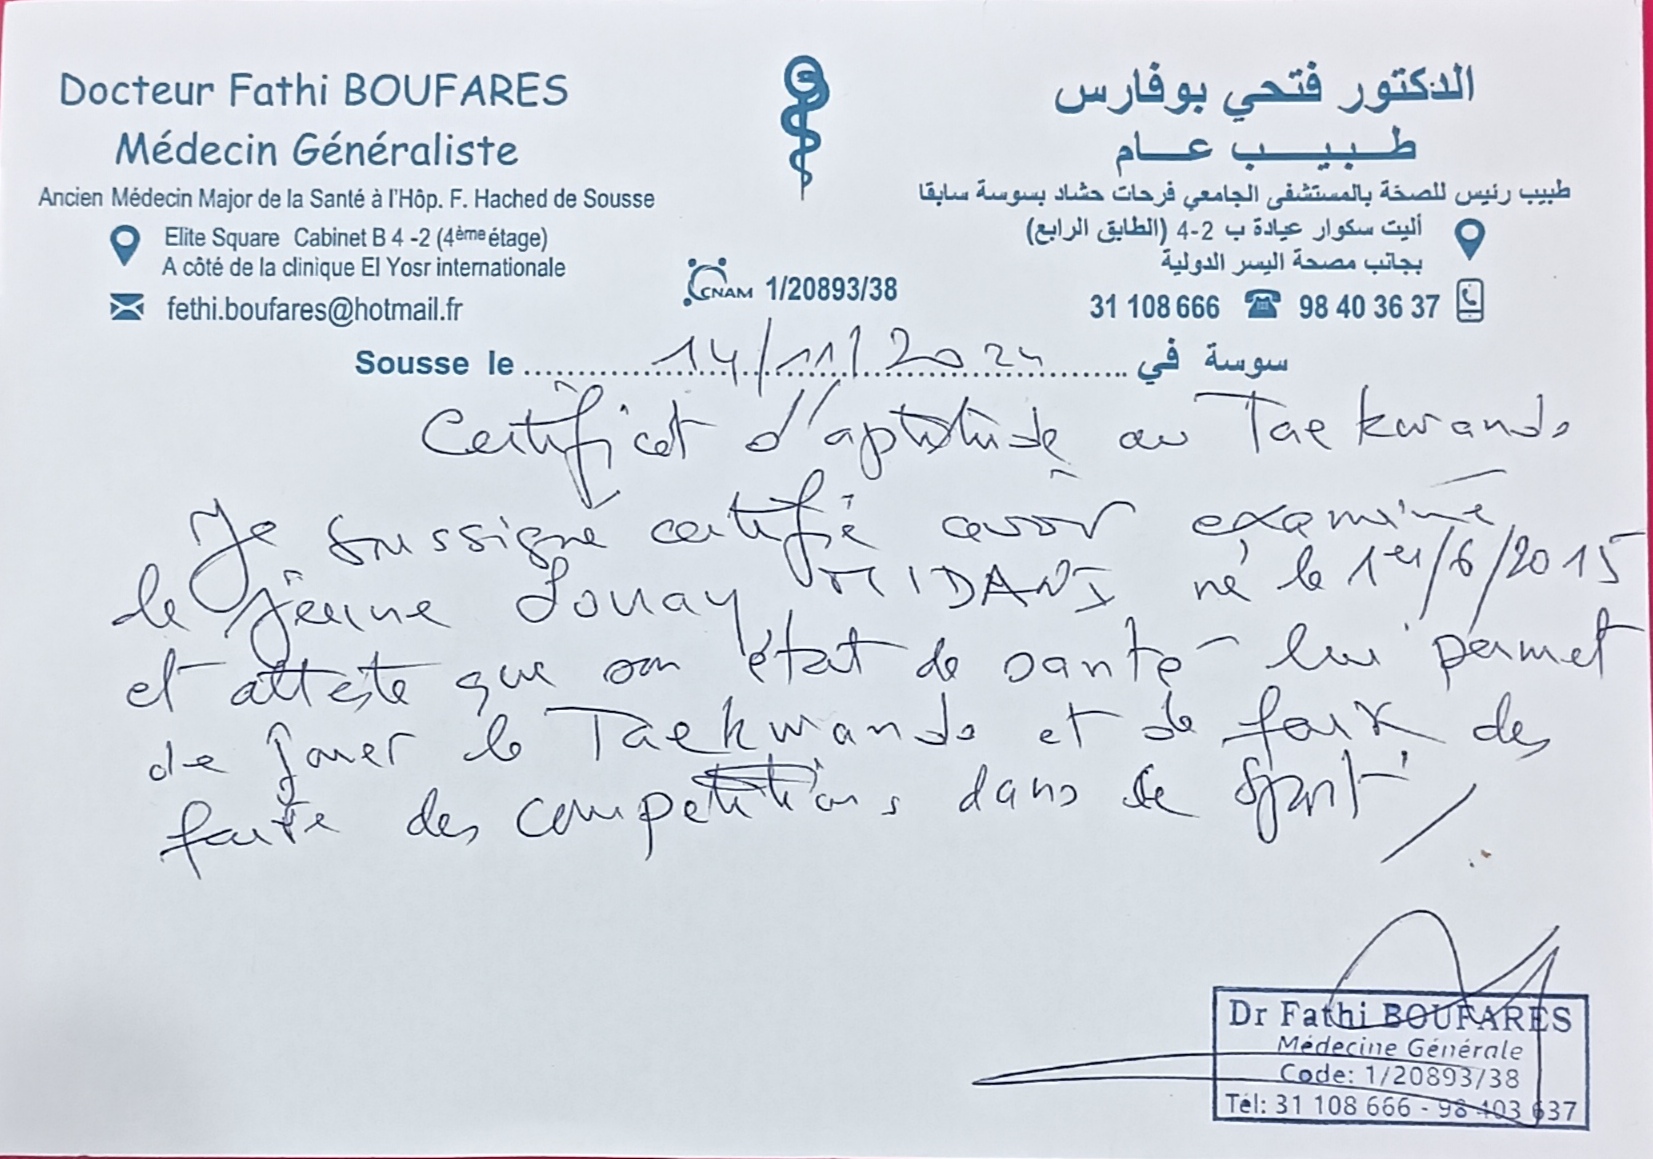 Docteur Fathi BOUFARES
Médecin Généraliste
Ancien Médecin Major de la Santé à l'Hôp. F. Hached de Sousse
Elite Square Cabinet B 4 -2 (4ème étage)
A côté de la clinique El Yosr internationale
fethi.boufares@hotmail.fr
CNAM 1/20893/38
الدكتور فتحي بوفارس
طبيب عام
طبيب رئيس للصحة بالمستشفى الجامعي فرحات حشاد بسوسة سابقا
أليت سكوار عيادة ب 2-4 (الطابق الرابع)
بجانب مصحة اليسر الدولية
31 108 666 98 40 36 37
Sousse le 14/11/2024 سوسة في
Certificat d'aptitude au Taekwando
Je soussigne certifié avoir examiné
le jeune Louay MIDANI né le 1er/6/2015
et atteste que son état de santé lui permet
de jouer le Taekwando et de faire des
faire des competitions dans ce sport
Dr Fathi BOUFARES
Médecine Générale
Code: 1/20893/38
Tél: 31 108 666 - 98 403 637